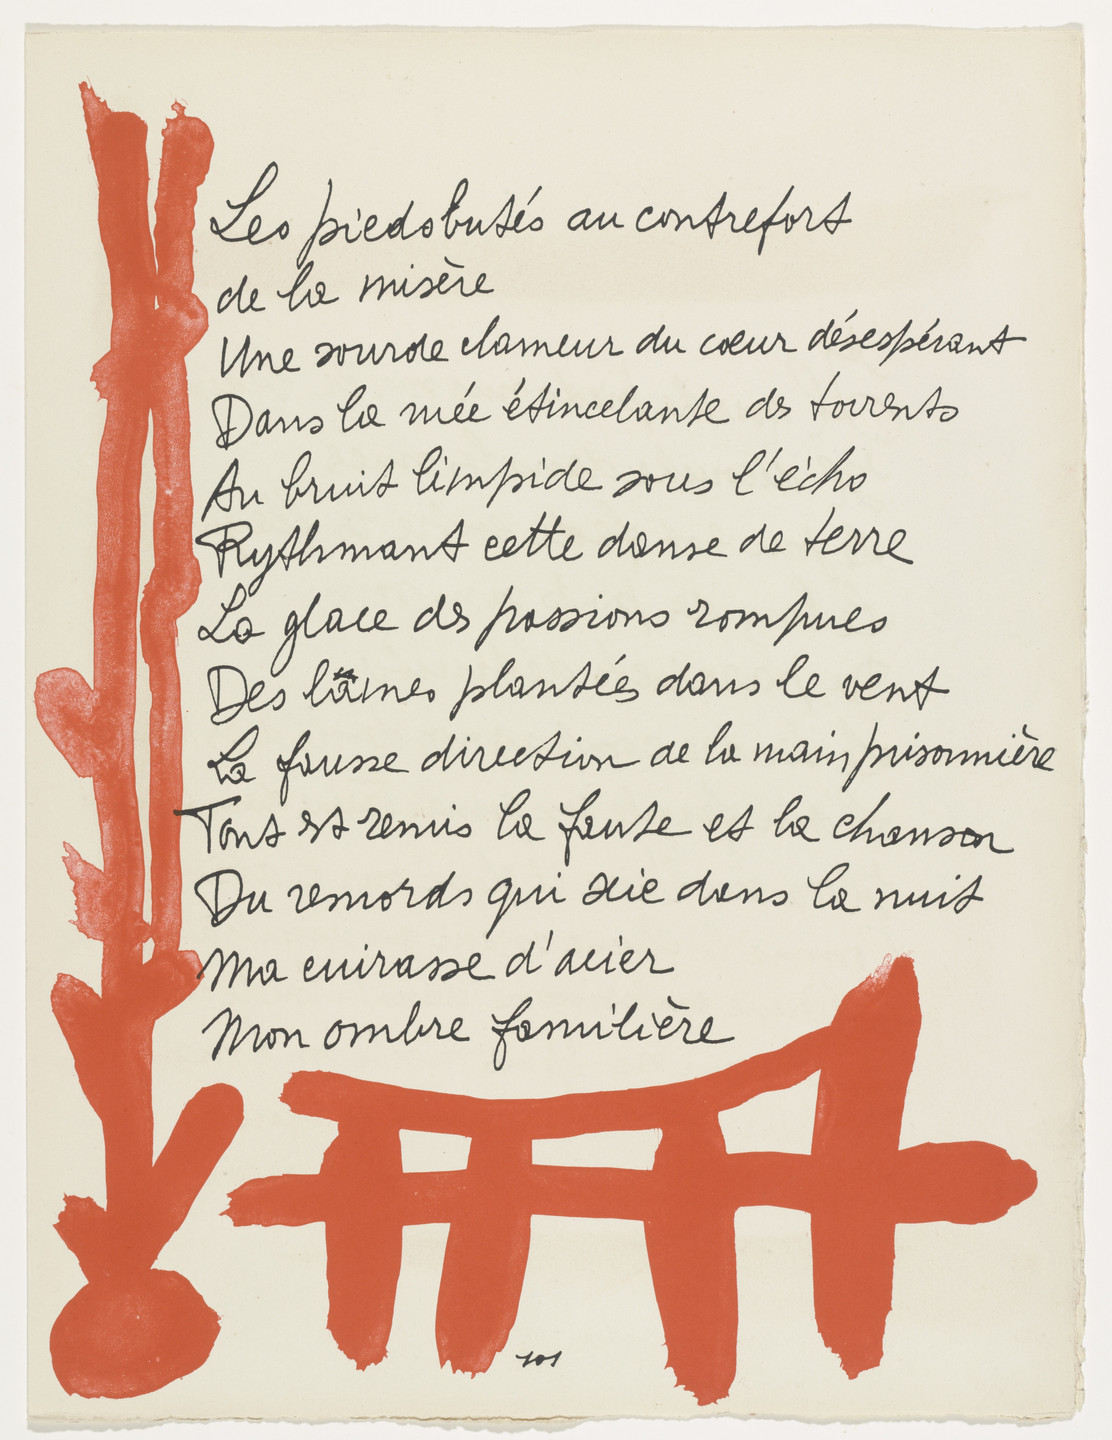 Les pieds butés au contrefort
de la misère
Une sourde clameur du cœur désespérant
Dans la ruée étincelante des torrents
Au bruit limpide sous l'écho
Rythmant cette danse de terre
La glace des passions rompues
Des lames plantées dans le vent
La fausse direction de la main prisonnière
Tout est remis la faute et la chanson
Du remords qui scie dans la nuit
Ma cuirasse d'acier
Mon ombre familière
101